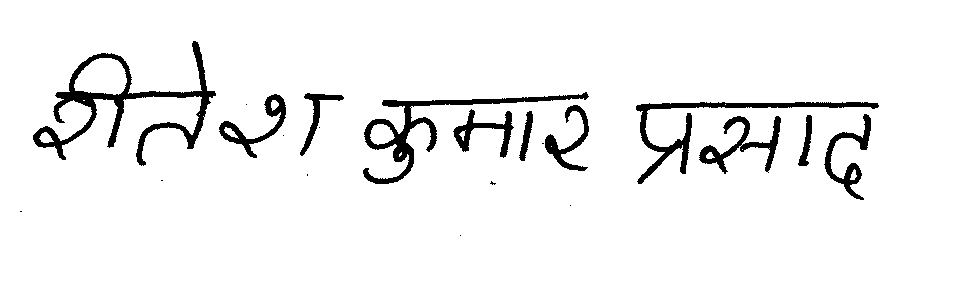 शीतेश कुमार प्रसाद